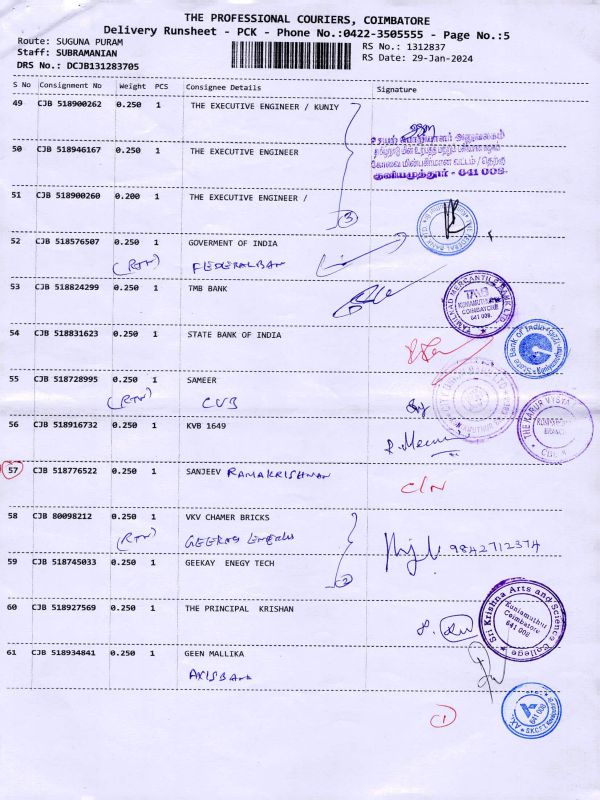 THE PROFESSIONAL COURIERS, COIMBATORE
Delivery Runsheet - PCK - Phone No.:0422-3505555 - Page No.:5
Route: SUGUNA PURAM
RS No.: 1312837
Staff: SUBRAMANIAN
RS Date: 29-Jan-2024
DRS No.: DCJB131283705
S No Consignment No Weight PCS Consignee Details Signature
49 CJB 518900262 0.250 1 THE EXECUTIVE ENGINEER / KUNIY
50 CJB 518946167 0.250 1 THE EXECUTIVE ENGINEER
குனியமுத்தூர் - 641 008.
51 CJB 518900260 0.200 1 THE EXECUTIVE ENGINEER /
3
52 CJB 518576507 0.250 1 GOVERMENT OF INDIA
(RTN) FEDERALBAN
53 CJB 518824299 0.250 1 TMB BANK
TAMILNAD MERCANTILE BANK LTD
TMB
KUNIAMUTHUR
COIMBATORE
641 008.
54 CJB 518831623 0.250 1 STATE BANK OF INDIA
State Bank of India
55 CJB 518728995 0.250 1 SAMEER
(RTN) CUB
56 CJB 518916732 0.250 1 KVB 1649
R. Meen
THE KARUR VYSYA
BRANCH
57 CJB 518776522 0.250 1 SANJEEV RAMAKRISHNAN
C/N
58 CJB 80098212 0.250 1 VKV CHAMER BRICKS
(RTN) 9842712374
59 CJB 518745033 0.250 1 GEEKAY ENEGY TECH
2
60 CJB 518927569 0.250 1 THE PRINCIPAL KRISHAN
Sri Krishna Arts and Science College
Kuniamuthur
Coimbatore
641 008
61 CJB 518934841 0.250 1 GEEN MALLIKA
AXISBank
641 008
SKCET
1